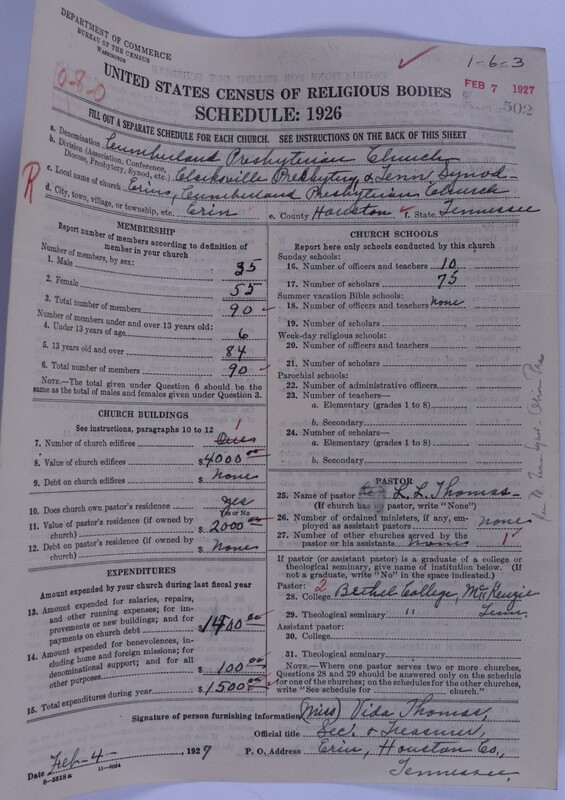 DEPARTMENT OF COMMERCE
BUREAU OF THE CENSUS
WASHINGTON
1-6-3
FEB 7 1927
502
0-8-0
UNITED STATES CENSUS OF RELIGIOUS BODIES
SCHEDULE: 1926
FILL OUT A SEPARATE SCHEDULE FOR EACH CHURCH. SEE INSTRUCTIONS ON THE BACK OF THIS SHEET
a. Denomination Cumberland Presbyterian Church
b. Division (Association, Conference, Diocese, Presbytery, Synod, etc.) Clarksville Presbytery & Tenn Synod
c. Local name of church Erin, Cumberland Presbyterian Church
R
d. City, town, village, or township, etc. Erin e. County Houston f. State Tennessee
MEMBERSHIP
Report number of members according to definition of
member in your church
Number of members, by sex:
1. Male 35
2. Female 55
3. Total number of members 90
Number of members under and over 13 years old:
4. Under 13 years of age 6
5. 13 years old and over 84
6. Total number of members 90
NOTE.—The total given under Question 6 should be the
same as the total of males and females given under Question 3.
CHURCH BUILDINGS
See instructions, paragraphs 10 to 12
1
7. Number of church edifices
8. Value of church edifices $4000.00
9. Debt on church edifices $ None
10. Does church own pastor's residence? Yes
Yes or No
11. Value of pastor's residence (if owned by
church) $ 2000.00
12. Debt on pastor's residence (if owned by
church) $ None
EXPENDITURES
Amount expended by your church during last fiscal year
13. Amount expended for salaries, repairs,
and other running expenses; for im-
provements or new buildings; and for
payments on church debt $ 1400.00
14. Amount expended for benevolences, in-
cluding home and foreign missions; for
denominational support; and for all
other purposes $ 100.00
15. Total expenditures during year $ 1500.00
CHURCH SCHOOLS
Report here only schools conducted by this church
Sunday schools:
16. Number of officers and teachers 10
17. Number of scholars 75
Summer vacation Bible schools:
18. Number of officers and teachers None
19. Number of scholars
Week-day religious schools:
20. Number of officers and teachers
21. Number of scholars
Parochial schools:
22. Number of administrative officers
23. Number of teachers—
a. Elementary (grades 1 to 8)
b. Secondary
24. Number of scholars—
a. Elementary (grades 1 to 8)
b. Secondary
PASTOR
25. Name of pastor L. L. Thomas
(If church has pastor, write "None")
26. Number of ordained ministers, if any, em-
ployed as assistant pastors None
27. Number of other churches served by the
pastor or his assistants none 1
If pastor (or assistant pastor) is a graduate of a college or
theological seminary, give name of institution below. (If
not a graduate, write "No" in the space indicated.)
Pastor: 2
28. College Bethel College, McKenzie
Tenn.
29. Theological seminary "
Assistant pastor:
30. College
31. Theological seminary
NOTE.—Where one pastor serves two or more churches,
Questions 28 and 29 should be answered only on the schedule
for one of the churches; on the schedules for the other churches,
write "See schedule for church."
Signature of person furnishing information (Miss) Vida Thomas,
Official title Sec. & Treasurer,
Date Feb-4- , 1927 P. O. Address Erin, Houston Co,
Tennessee.
8-5518a 11-9024